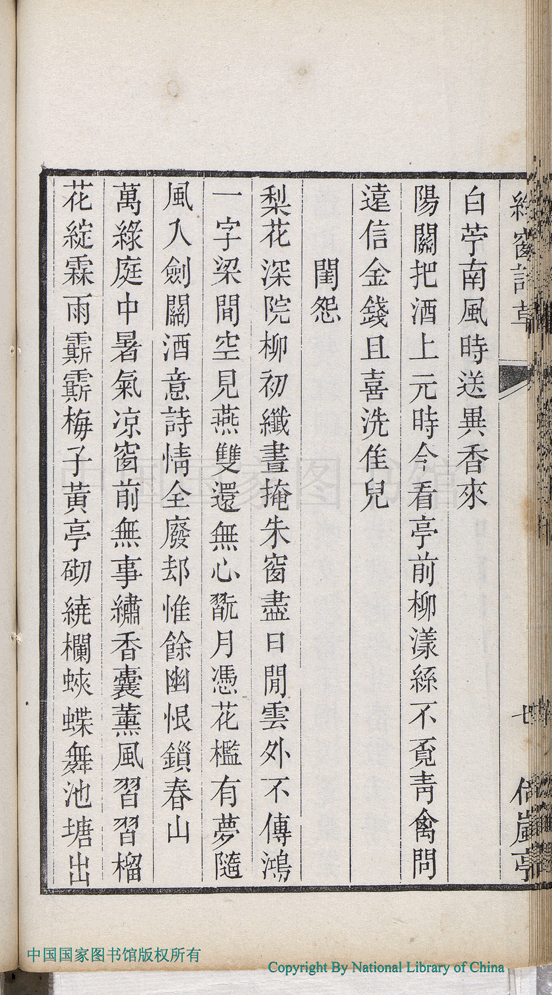 綠窗詩草
七
倚嵐亭
白苧南風時送異香來
陽關把酒上元時今看亭前柳漾絲不覔青禽問
遠信金錢且喜洗隹兒
閨怨
梨花深院柳初纖晝掩朱窗盡日閒雲外不傳鴻
一字梁間空見燕雙還無心翫月憑花檻有夢隨
風入劍關酒意詩情全廢却惟餘幽恨鎖春山
萬綠庭中暑氣凉窗前無事繡香囊薰風習習榴
花綻霖雨霢霢梅子黄亭砌繞欄蛺蝶舞池塘出
中国国家图书馆
中国国家图书馆版权所有
Copyright By National Library of China